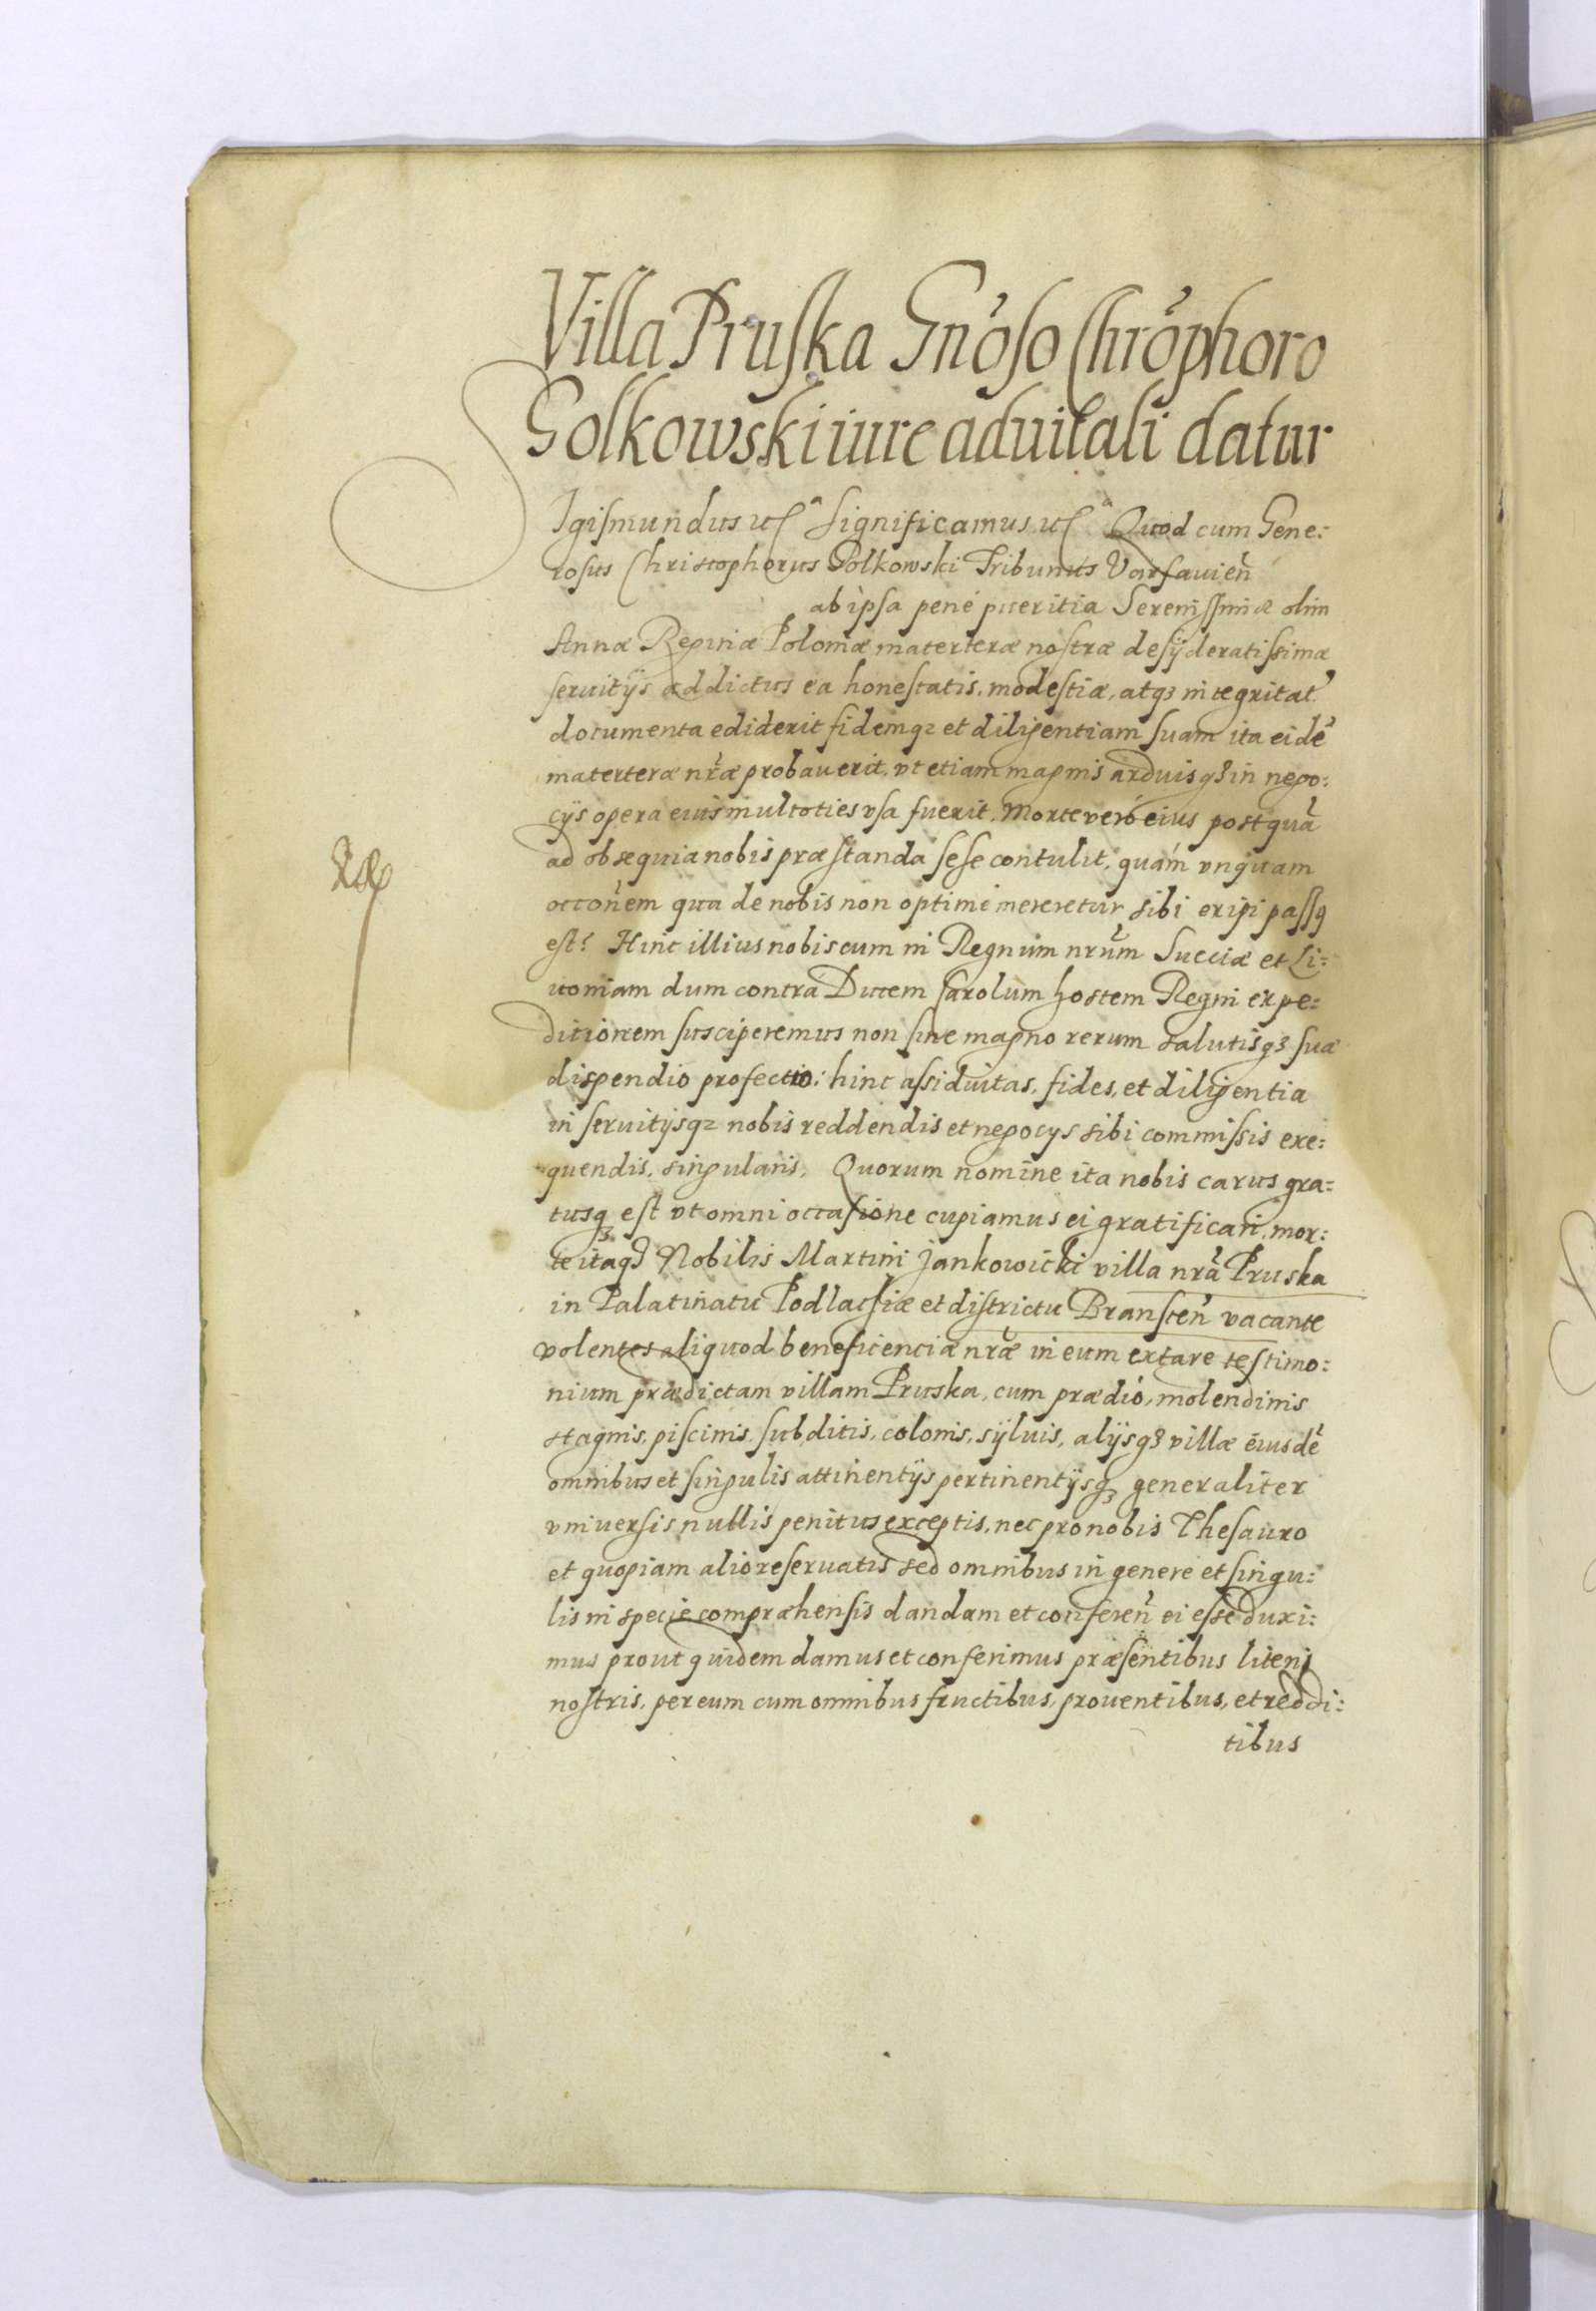 Villa Pruska Gnoso Chrophoro
Golkowski iure aduitali datur
Sigismundus etc Significamus etc Quod cum Gene:
rosus Christophorus Golkowski Tribunus Varsauien
ab ipsa pene pueritia Serenissimæ olim
Annæ Reginæ Poloniæ materteræ nostræ desyderatissimæ
seruitijs addictus ea honestatis, modestiæ, atq3 integritat
documenta ediderit fidemq3 et diligentiam suam ita eidē
materteræ nræ probauerit, vt etiam magnis arduisq3 in nego:
cijs opera eius multoties vsa fuerit. Morte verò eius postquā
ad obsequia nobis præstanda sese contulit, quám vnquam
occonem qua de nobis non optimè mereretur sibi eripi passq
est? Hinc illius nobiscum in Regnum nrum Sueciæ et Li:
uoniam dum contra Ducem Carolum hostem Regni expe:
ditionem susciperemus non sine magno rerum salutisq3 suæ
dispendio profectio: hinc assiduitas, fides, et diligentia
in seruitijsq3 nobis reddendis et negocijs sibi commissis exe:
quendis, singularis. Quorum nomine ita nobis carus gra:
tusq3 est vt omni occasione cupiamus ei gratificari, mor:
te itaq3 Nobilis Martini Jankowicki villa nra Pruska
in Palatinatu Podlachiæ et districtu Branscen vacante
volentes aliquod beneficenciæ nræ in eum extare testimo:
nium prædictam villam Pruska, cum prædio, molendinis
stagnis, piscinis, subditis, colonis, syluis, alijsq3 villæ eiusdē
omnibus et singulis attinentijs pertinentijsq3 generaliter
vniuersis nullis penitus exceptis, nec pro nobis Thesauro
et quopiam alio reseruatis sed omnibus in genere et singu:
lis in specie compræhensis dandam et conferen ei esse duxi:
mus prout quidem damus et conferimus præsentibus literis
nostris, per eum cum omnibus fructibus, prouentibus, et reddi:
tibus